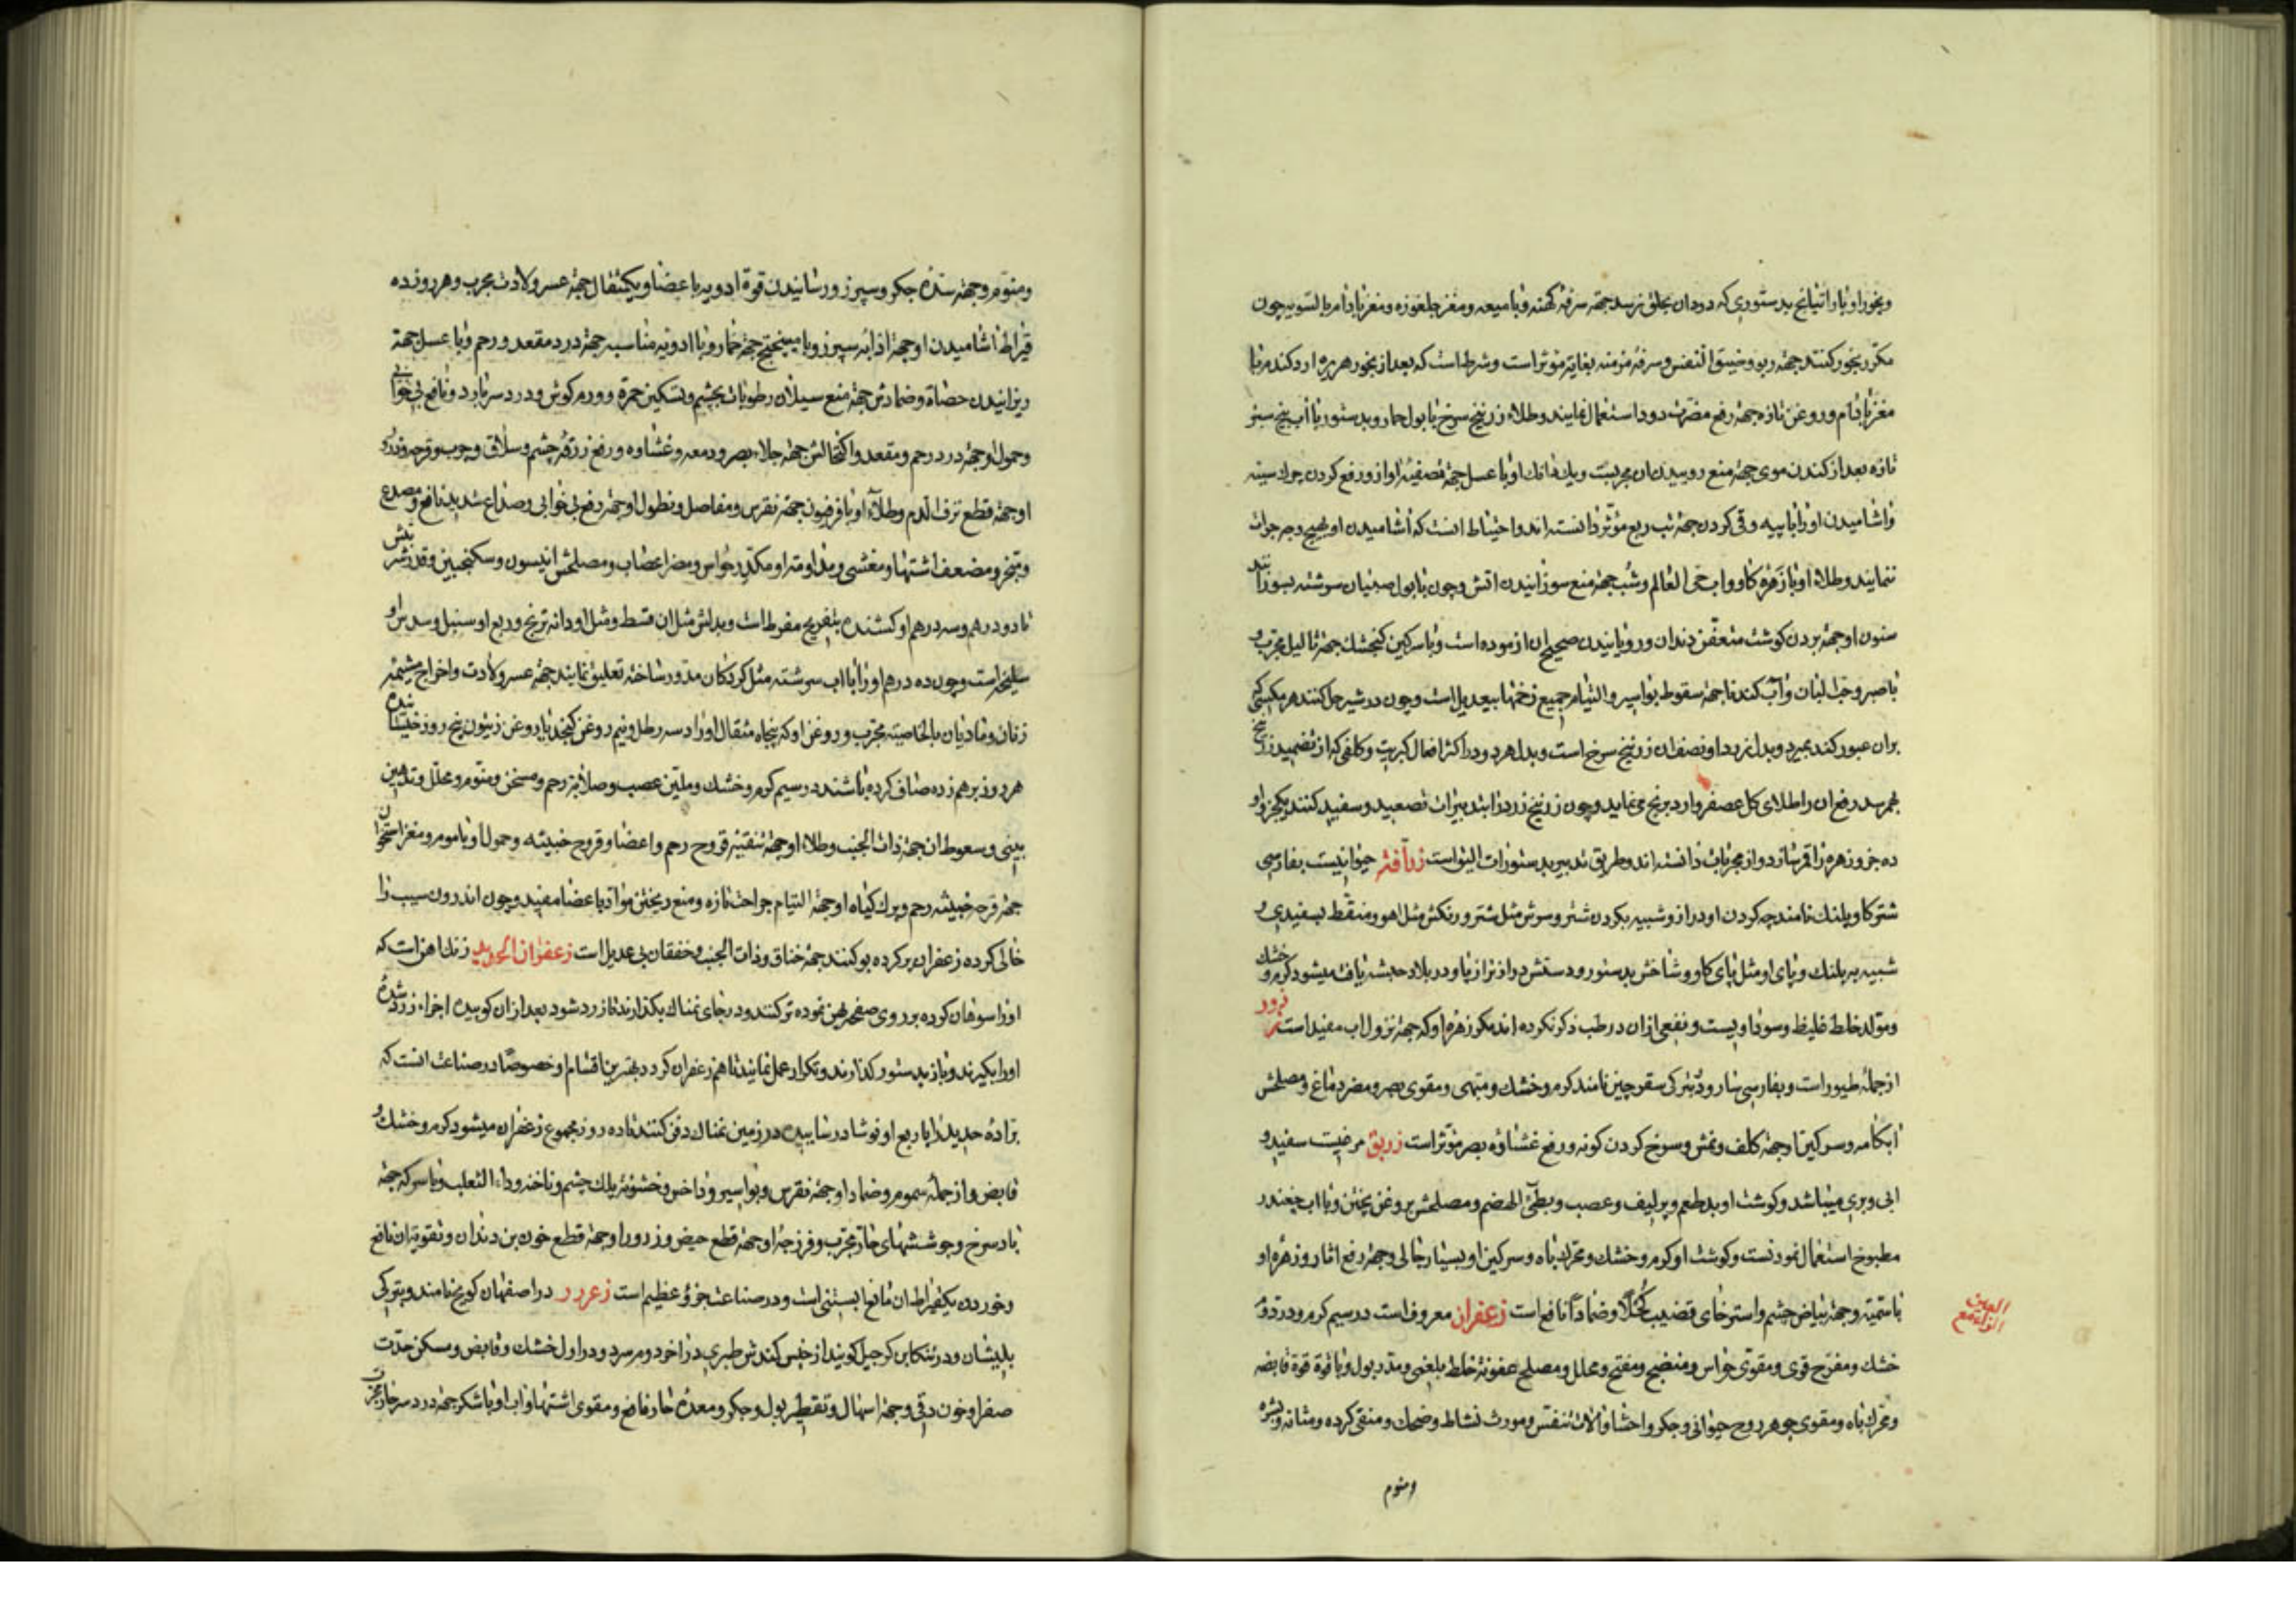 وبخور او با راتیانج بدستوری که دودان بحلق نرسد جهة سرفه کهنه و با میعه و مغز جلغوزه و مغز بادام بالسویه چون
مکرر بخور کنند جهة ربو و ضیق النفس و سرفه مزمنه بغایة مؤثر است و شرط است که بعد از بخور هریره ارد کندم با
مغز بادام و روغن تازه جهة رفع مضرت دود استعمال نمایند و طلاء زرنیخ سرخ با بول حمار و بدستور با آب بنج سبز
تازه بعد از کندن موی جهة منع روییدن ان مجربست و یک دانک او با عسل جهة تصفیه اواز و رفع کردن چرک سینه
و اشامیدن او را با پیه و قی کردن جهة تب ربع مؤثر دانسته اند و احتیاط انست که اشامیدن او بهیچ وجه جرات
ننمایند و طلاء او با زهره کاو و اب حی العالم و شب جهة منع سوزانیدن اتش و چون با بول صبیان سرشته بسوزانند
سنون او جهة بردن کوشت متعفن دندان و رویانیدن صحیح ان ازموده است و با سرکین کنجشک جهة ثالیل مجرب و
با صبر و حب لبان و آب کندنا جهة سقوط بواسیر و التیام جمیع زخمها بیعدیل است و چون در شیر حل کنند هر مکسی که
بران عبور کند بمیرد و بدل زرد او نصف ان زرنیخ سرخ است و بدل هر دو در اکثر افعال کبریت و کلفی که از تضمید زرنیخ
بهم رسد رفع ان را طلای کل عصفر و ارد برنج می نماید و چون زرنیخ زرد را بتدبیرات تصعید و سفید کنند یکجزو او
ده جزو زهره را قمر سازد و از مجربات دانسته اند و طریق تدبیر بدستورات الیواست زرافه حیوانیست بفارسی
شتر کاو پلنک نامند چه کردن او دراز و شبیه بکردن شتر و سرش مثل شتر و رنکش مثل اهو و منقط بسفیدی و
شبیه به پلنک و پای او مثل پای کاو و شاخش بدستور و دستش درازتر از پا و در بلاد حبشه یافت میشود کرم و خشک
و مولد خلط غلیظ و سوداویست و نفعی ازان در طب ذکر نکرده اند مکر زهره او که جهة نزول اب مفید است زرزور
از جمله طیور است و بفارسی سار و بترکی سقرچین نامند کرم و خشک و مبهی و مقوی بصر و مضر دماغ و مصلحش
ابکامه و سرکین او جهة کلف و نمش و سرخ کردن کونه و رفع غشاوه بصر مؤثر است زریق مرغیست سفید و
ابی و بری میباشد و کوشت او بد طعم و پر لیف و عصب و بطئ الهضم و مصلحش بروغن پختن و با اب چغندر
مطبوخ استعمال نمودنست و کوشت او کرم و خشک و محرک باه و سرکین او بسیار جالی و جهة رفع اثار و زهره او
جهة بیاض چشم و استرخای قضیب کحلا و ضمادا نافع است زعفران معروف است در سیم کرم و در دوم
خشک و مفرح قوی و مقوی حواس و منضج و مفتح و محلل و مصلح عفونة خلط بلغمی و مدر بول و با قوة قوة قابضه
و محرک باه و مقوی جوهر روح حیوانی و جکر و احشا و آلات تنفس و مورث نشاط و ضحک و منقی کرده و مثانه و بشره
ومنوم
العین
الزاء مع
ومنوم و جهة سده جکر و سپرز و رسانیدن قوة ادویه باعضا و یکمثقال جهة عسر ولادت مجرب و هر روز ده
قیراط اشامیدن او جهة اذابه سپرز و با میبختج جهة خمار و با ادویه مناسبه جهة درد مقعد و رحم و با عسل جهة
ریزانیدن حصاة و ضمادش جهة منع سیلان رطوبات بچشم و تسکین حمرة و ورم کوش و درد سر بارد و نافع بی خوابی
و حمول او جهة درد رحم و مقعد و اکتحالش جهة جلاء بصر و دمعه و غشاوه و رفع زرقه چشم و سلاق و جرب و قرحه و ذرور
او جهة قطع نزف الدم و طلاء او با فرفیون جهة نقرس و مفاصل و نطول او جهة رفع بی خوابی و صداع شدید نافع و مصدع
و مبخر و مضعف اشتها و مغشی و مداومة او مکدر حواس و مضر اعصاب و مصلحش انیسون و سکنجبین و قدر شربتش
تا دو درهم و سه درهم او کشنده بتفریح مفرط است و بدلش مثل ان قسط و مثل او دانه ترنج و ربع او سنبل و سدس او
سلیخه است و چون ده درهم او را با اب سرشته مثل کردکان مدور ساخته تعلیق نمایند جهة عسر ولادت و اخراج مشیمه
زنان و مادیان بالخاصیة مجرب و روغن او که پنجاه مثقال او را در سه رطل و نیم روغن کنجد یا روغن زیتون پنج روز خیسانیده
هر روز برهم زده صاف کرده باشند در سیم کرم و خشک و ملین عصب و صلابة رحم و مسخن و منوم و محلل و تدهین
بینی و سعوط ان جهة ذات الجنب و طلاء او جهة تنقیه قروح رحم و اعضا و قروح خبیثه و حمول او با موم و مغز استخوان
جهة قرحه خبیثه رحم و برک کیاه او جهة التیام جراحت تازه و منع ریختن مواد باعضا مفید و چون اندرون سیب را
خالی کرده زعفران پر کرده بو کنند جهة خناق و ذات الجنب و خفقان بی عدیل است زعفران الحدید زنک اهن است که
او را سوهان کرده بر روی صفحه پهن نموده تر کنند و در جای نمناک بکذارند تا زرد شود بعد ازان کوبیده اجزاء زرد شده
او را بکیرند و باز بدستور کذارند و تکرار عمل نمایند تا اهن زعفران کردد بهترین اقسام او خصوصا در صناعت انست که
براده حدید را با ربع او نوشادر ساییده در زمین نمناک دفن کنند تا ده روز مجموع زعفران میشود کرم و خشک و
قابض و از جمله سموم و ضماد او جهة نقرس و بواسیر و داخس و خشونة پلک چشم و ناخنه و داء الثعلب و با سرکه جهة
باد سرخ و جوششهای حار مجرب و فرزجه او جهة قطع حیض و ذرور او جهة قطع خون بن دندان و تقویة ان نافع
و خوردن یکقیراط ان مانع ابستنی است و در صناعت جزؤ عظیم است زعرور در اصفهان کویج نامند و بترکی
یلمیشان و در تنکابن کرجیل کویند از جنس کندش طبری در اخر دوم سرد و در اول خشک و قابض و مسکن حدت
صفرا و خون و قی و جهة اسهال و تقطیر بول و جکر و معده حار نافع و مقوی اشتها و اب او با شکر جهة درد سر حار مجرب